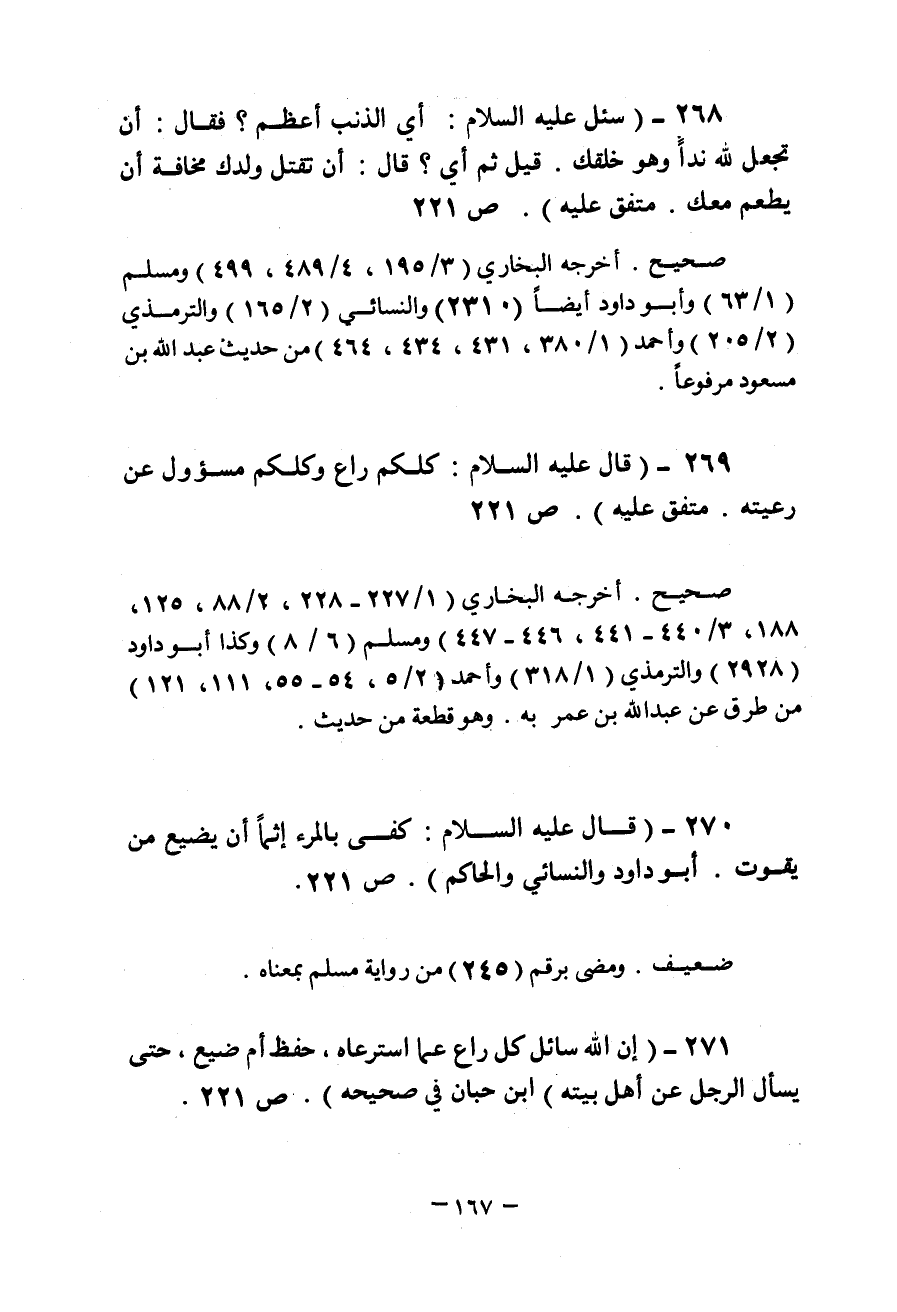 ٢٦٨ - ( سئل عليه السلام : أي الذنب أعظم ؟ فقال : أن
تجعل لله نداً وهو خلقك . قيل ثم أي ؟ قال : أن تقتل ولدك مخافة أن
يطعم معك . متفق عليه ) . ص ٢٢١
صحيح . أخرجه البخاري ( ٣/ ١٩٥ ، ٤/ ٤٨٩ ، ٤٩٩ ) ومسلم
( ١/ ٦٣ ) وأبو داود أيضاً (٢٣١٠) والنسائي ( ٢/ ١٦٥ ) والترمذي
( ٢/ ٢٠٥ ) وأحمد ( ١/ ٣٨٠ ، ٤٣١ ، ٤٣٤ ، ٤٦٤ ) من حديث عبد الله بن
مسعود مرفوعاً .
٢٦٩ - ( قال عليه السلام : كلكم راع وكلكم مسؤول عن
رعيته . متفق عليه ) . ص ٢٢١
صحيح . أخرجه البخاري ( ١/ ٢٢٧ - ٢٢٨ ، ٢/ ٨٨ ، ١٢٥،
١٨٨، ٣/ ٤٤٠ - ٤٤١ ، ٤٤٦ - ٤٤٧ ) ومسلم ( ٦ / ٨ ) وكذا أبو داود
( ٢٩٢٨ ) والترمذي ( ١/ ٣١٨ ) وأحمد ( ٢/ ٥ ، ٥٤ - ٥٥، ١١١، ١٢١ )
من طرق عن عبدالله بن عمر به . وهو قطعة من حديث .
٢٧٠ - ( قال عليه السلام : كفى بالمرء إثماً أن يضيع من
يقوت . أبو داود والنسائي والحاكم ) . ص ٢٢١.
ضعيف . ومضى برقم ( ٢٤٥ ) من رواية مسلم بمعناه .
٢٧١ - ( إن الله سائل كل راع عما استرعاه ، حفظ أم ضيع ، حتى
يسأل الرجل عن أهل بيته ) ابن حبان في صحيحه ) . ص ٢٢١ .
- ١٦٧ -